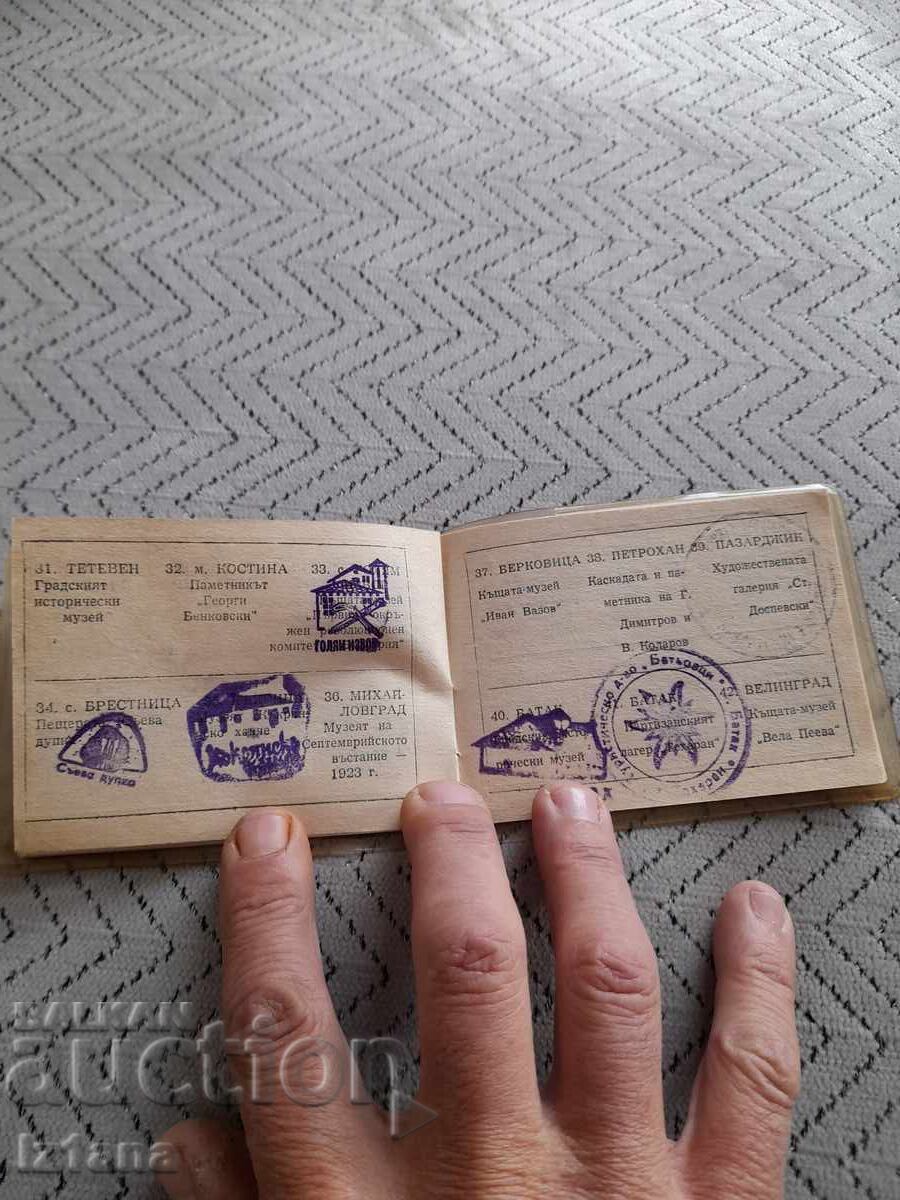 31. ТЕТЕВЕН
Градският
исторически
музей
32. м. КОСТИНА
Паметникът
„Георги
Бенковски“
33. с.
ГОЛЯМ ИЗВОР
34. с. БРЕСТНИЦА
Съева дупка
ханче
36. МИХАЙ-
ЛОВГРАД
Музеят на
Септемврийското
въстание
1923 г.
37. БЕРКОВИЦА
Къщата-музей
„Иван Вазов“
38. ПЕТРОХАН
Каскадата и па-
метника на Г.
Димитров и
В. Коларов
39. ПАЗАРДЖИК
Художествената
галерия „Ст.
Доспевски“
40. БАТАК
музей
БАТАК
Партизанският
лагер
42. ВЕЛИНГРАД
Къщата-музей
„Вела Пеева“
BALKAN
auction
Iz1ana